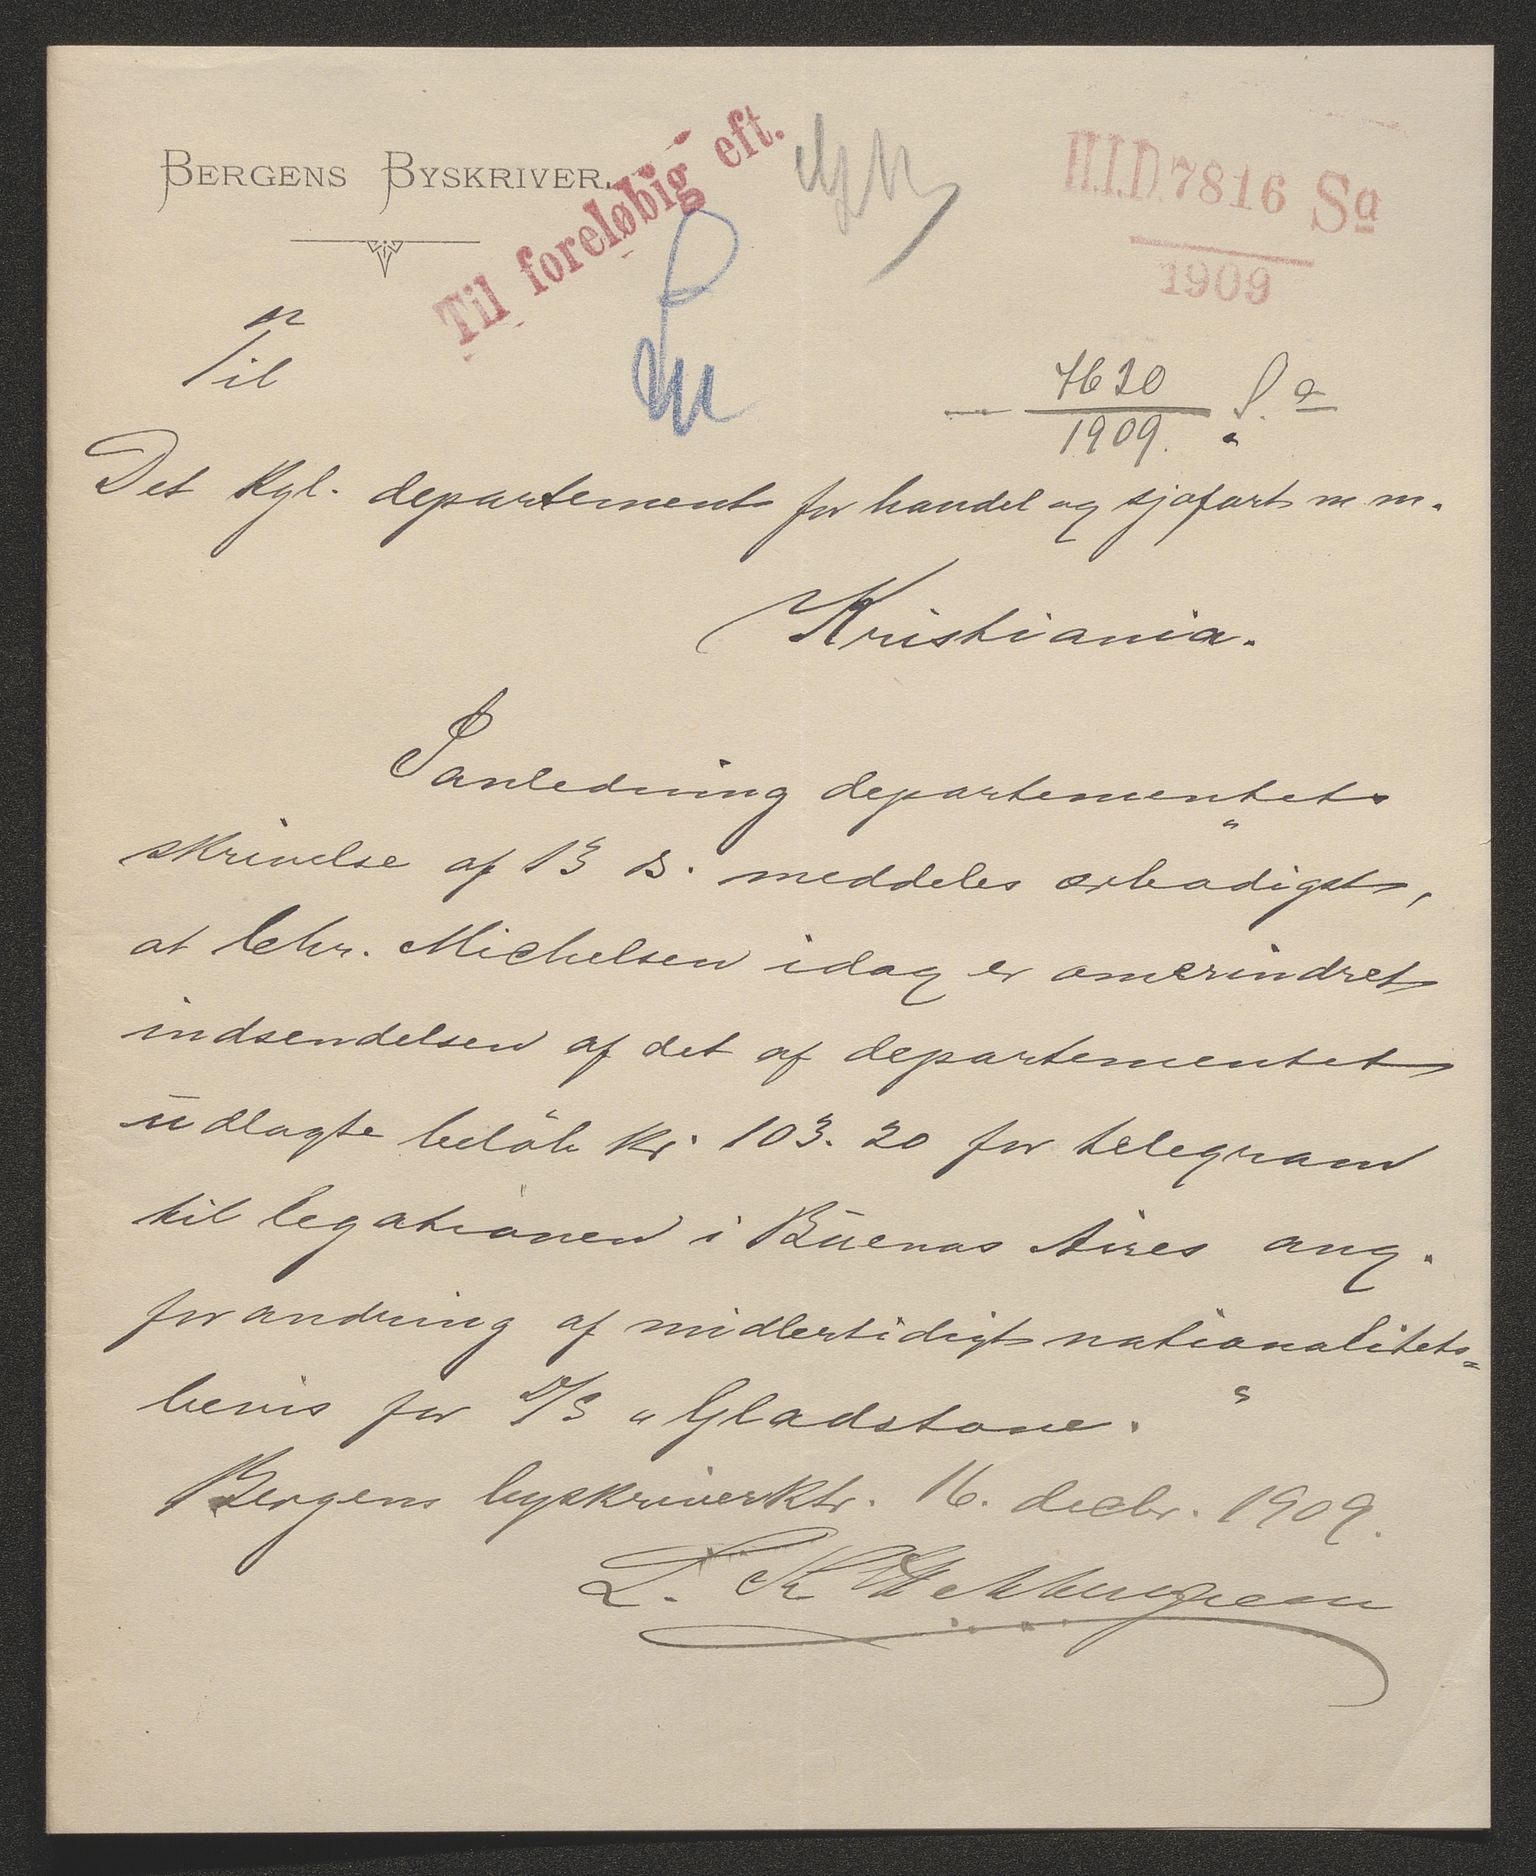 BERGENS BYSKRIVER.
Til foreløbig eft.
H.I.D. 7816 Sa
1909
Til
7620 S. a
1909.
Det kgl. departement for handel og sjøfart m m.
Kristiania.
I anledning departementets
skrivelse af 13 ds. meddeles ærbødigst,
at Chr. Michelsen idag er omerindret
indsendelsen af det af departementet
udlagte beløb kr. 103.20 for telegram
til legationen i Buenos Aires ang.
forandring af midlertidigt nationalitets-
bevis for D/S „Gladstone."
Bergens byskriverktr. 16. decbr. 1909.